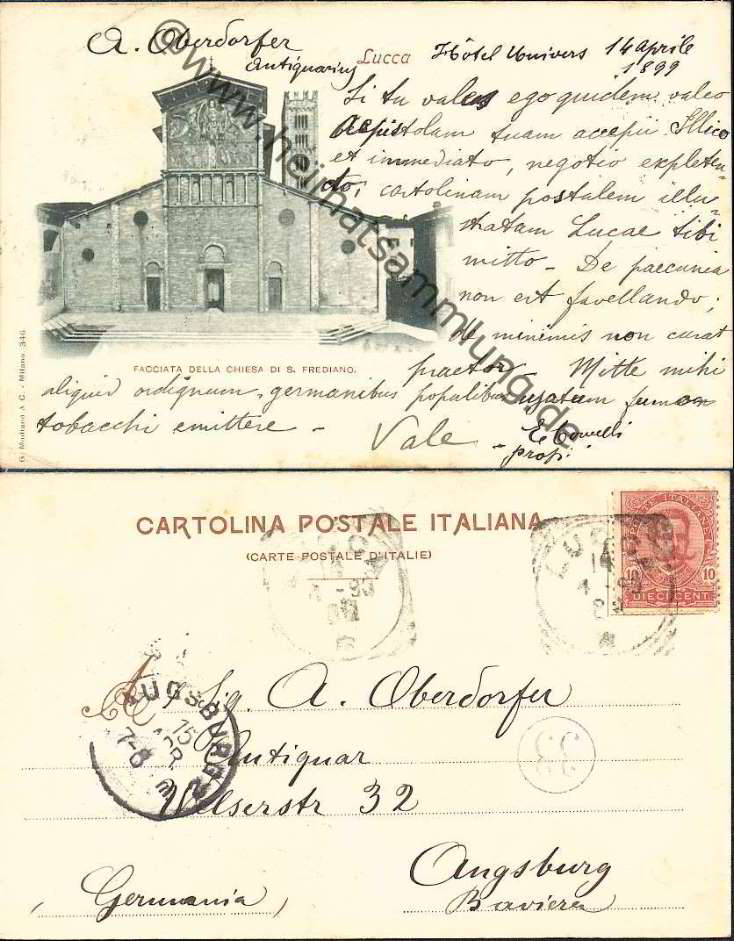 A. Oberdorfer
Antiquarius
Lucca
Hôtel Univers 14 aprile
1899
Si tu vales ego quidem valeo
epistolam tuam accepi Illico
et immediato, negotio expleten-
do, cartolinam postalem illu-
stratam Lucae tibi
mitto - De paecunia
non est favellando;
de minimis non curat
praetor. Mitte mihi
aliquid ordignum, germanibus popolibus usatum fumos
tobacchi emittere -
Vale
prof.
FACCIATA DELLA CHIESA DI S. FREDIANO.
G. Modiano & C. - Milano. 346
©www.heimatsammlung.de
CARTOLINA POSTALE ITALIANA
(CARTE POSTALE D'ITALIE)
POSTE ITALIANE
10 10
DIECI CENT
LUCCA
14
AUGSBURG
15
APR
7-8
33
Sig. A. Oberdorfer
Antiquar
Welserstr 32
Augsburg
(Germania) Baviera